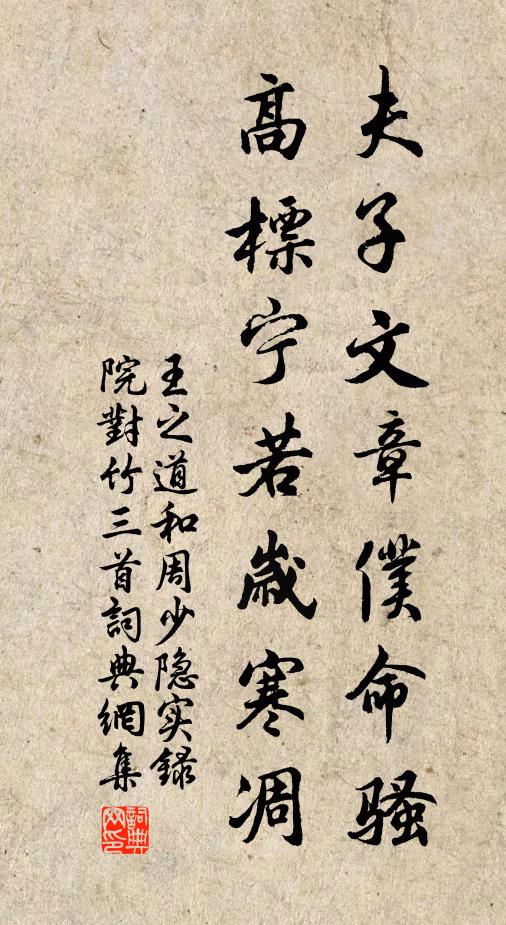 夫子文章僕命骚
高標宁若歲寒凋
王之道和周少隐实録
院對竹三首詞典網集
詞典网印